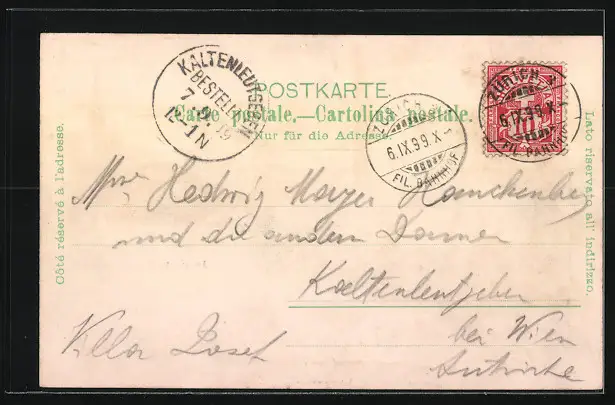 KALTENLEUTGEBEN
BESTELLT
7.9.99
12-1N
POSTKARTE.
Carte postale.—Cartolina postale.
Nur für die Adresse.
ZÜRICH
6.IX.99.X-
FIL. BAHNHOF
ZÜRICH
6.IX.99.X-
FIL. BAHNHOF
HELVETIA
10
Côté réservé à l'adresse.
Lato riservato all' indirizzo.
Hedwig Mayer
und die andern Damen
Kaltenleutgeben
Villa Josef
bei Wien
Autriche